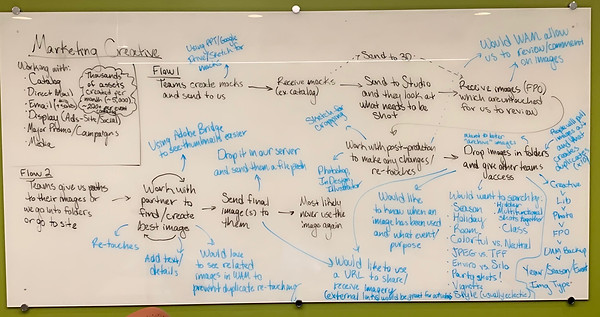 Marketing Creative
Working with:
- Catalog
- Direct Mail
- Email
- Display (Ads-Site/Social)
- Major Promo/Campaigns
- Media
Thousands
of assets
created for
month (~15,000)
Flow 1
Using PPT/Google
Draw/Sketch for
mocks
Teams create mocks
and send to us
Receive mocks
(ex. catalog)
Send to 3D
Send to Studio
and they look at
what needs to be
shot
Would WAM allow
us to review/comment
on images
Receive images (FPO)
which are untouched
for us to review
Sketch for
cropping
Work with post-production
to make any changes/
re-touches
Photoshop,
InDesign,
Illustrator
Drop images in folders
and give other teams
access
People will pull
images and
creates
duplicates
Creative
Lib
Photo
FPO
WAM Backup
Year/Season/Event
Img Type
Flow 2
Teams give us paths
to their images or
we go into folders
or go to site
Using Adobe Bridge
to see thumbnails easier
Work with
partner to
find/create
best image
Drop it in our server
and send them a file path
Send final
image(s) to
them
Most likely
never use the
image again
Re-touches
Add text/
details
Would love
to see related
images in WAM to
prevent duplicate re-touching
Would like
to know when an
image has been used
and what event/
purpose
Would like to use
a URL to share/
receive imagery
(external links would be great for
Would want to search by:
- Season
- Holiday
- Room
- Colorful vs. Neutral
- JPEG vs. TFF
- Enviro vs. Silo
- Party shots!
- Vignette
- Style (usually eclectic)
- Hidden
- Multifunctional
Shots together
- Class